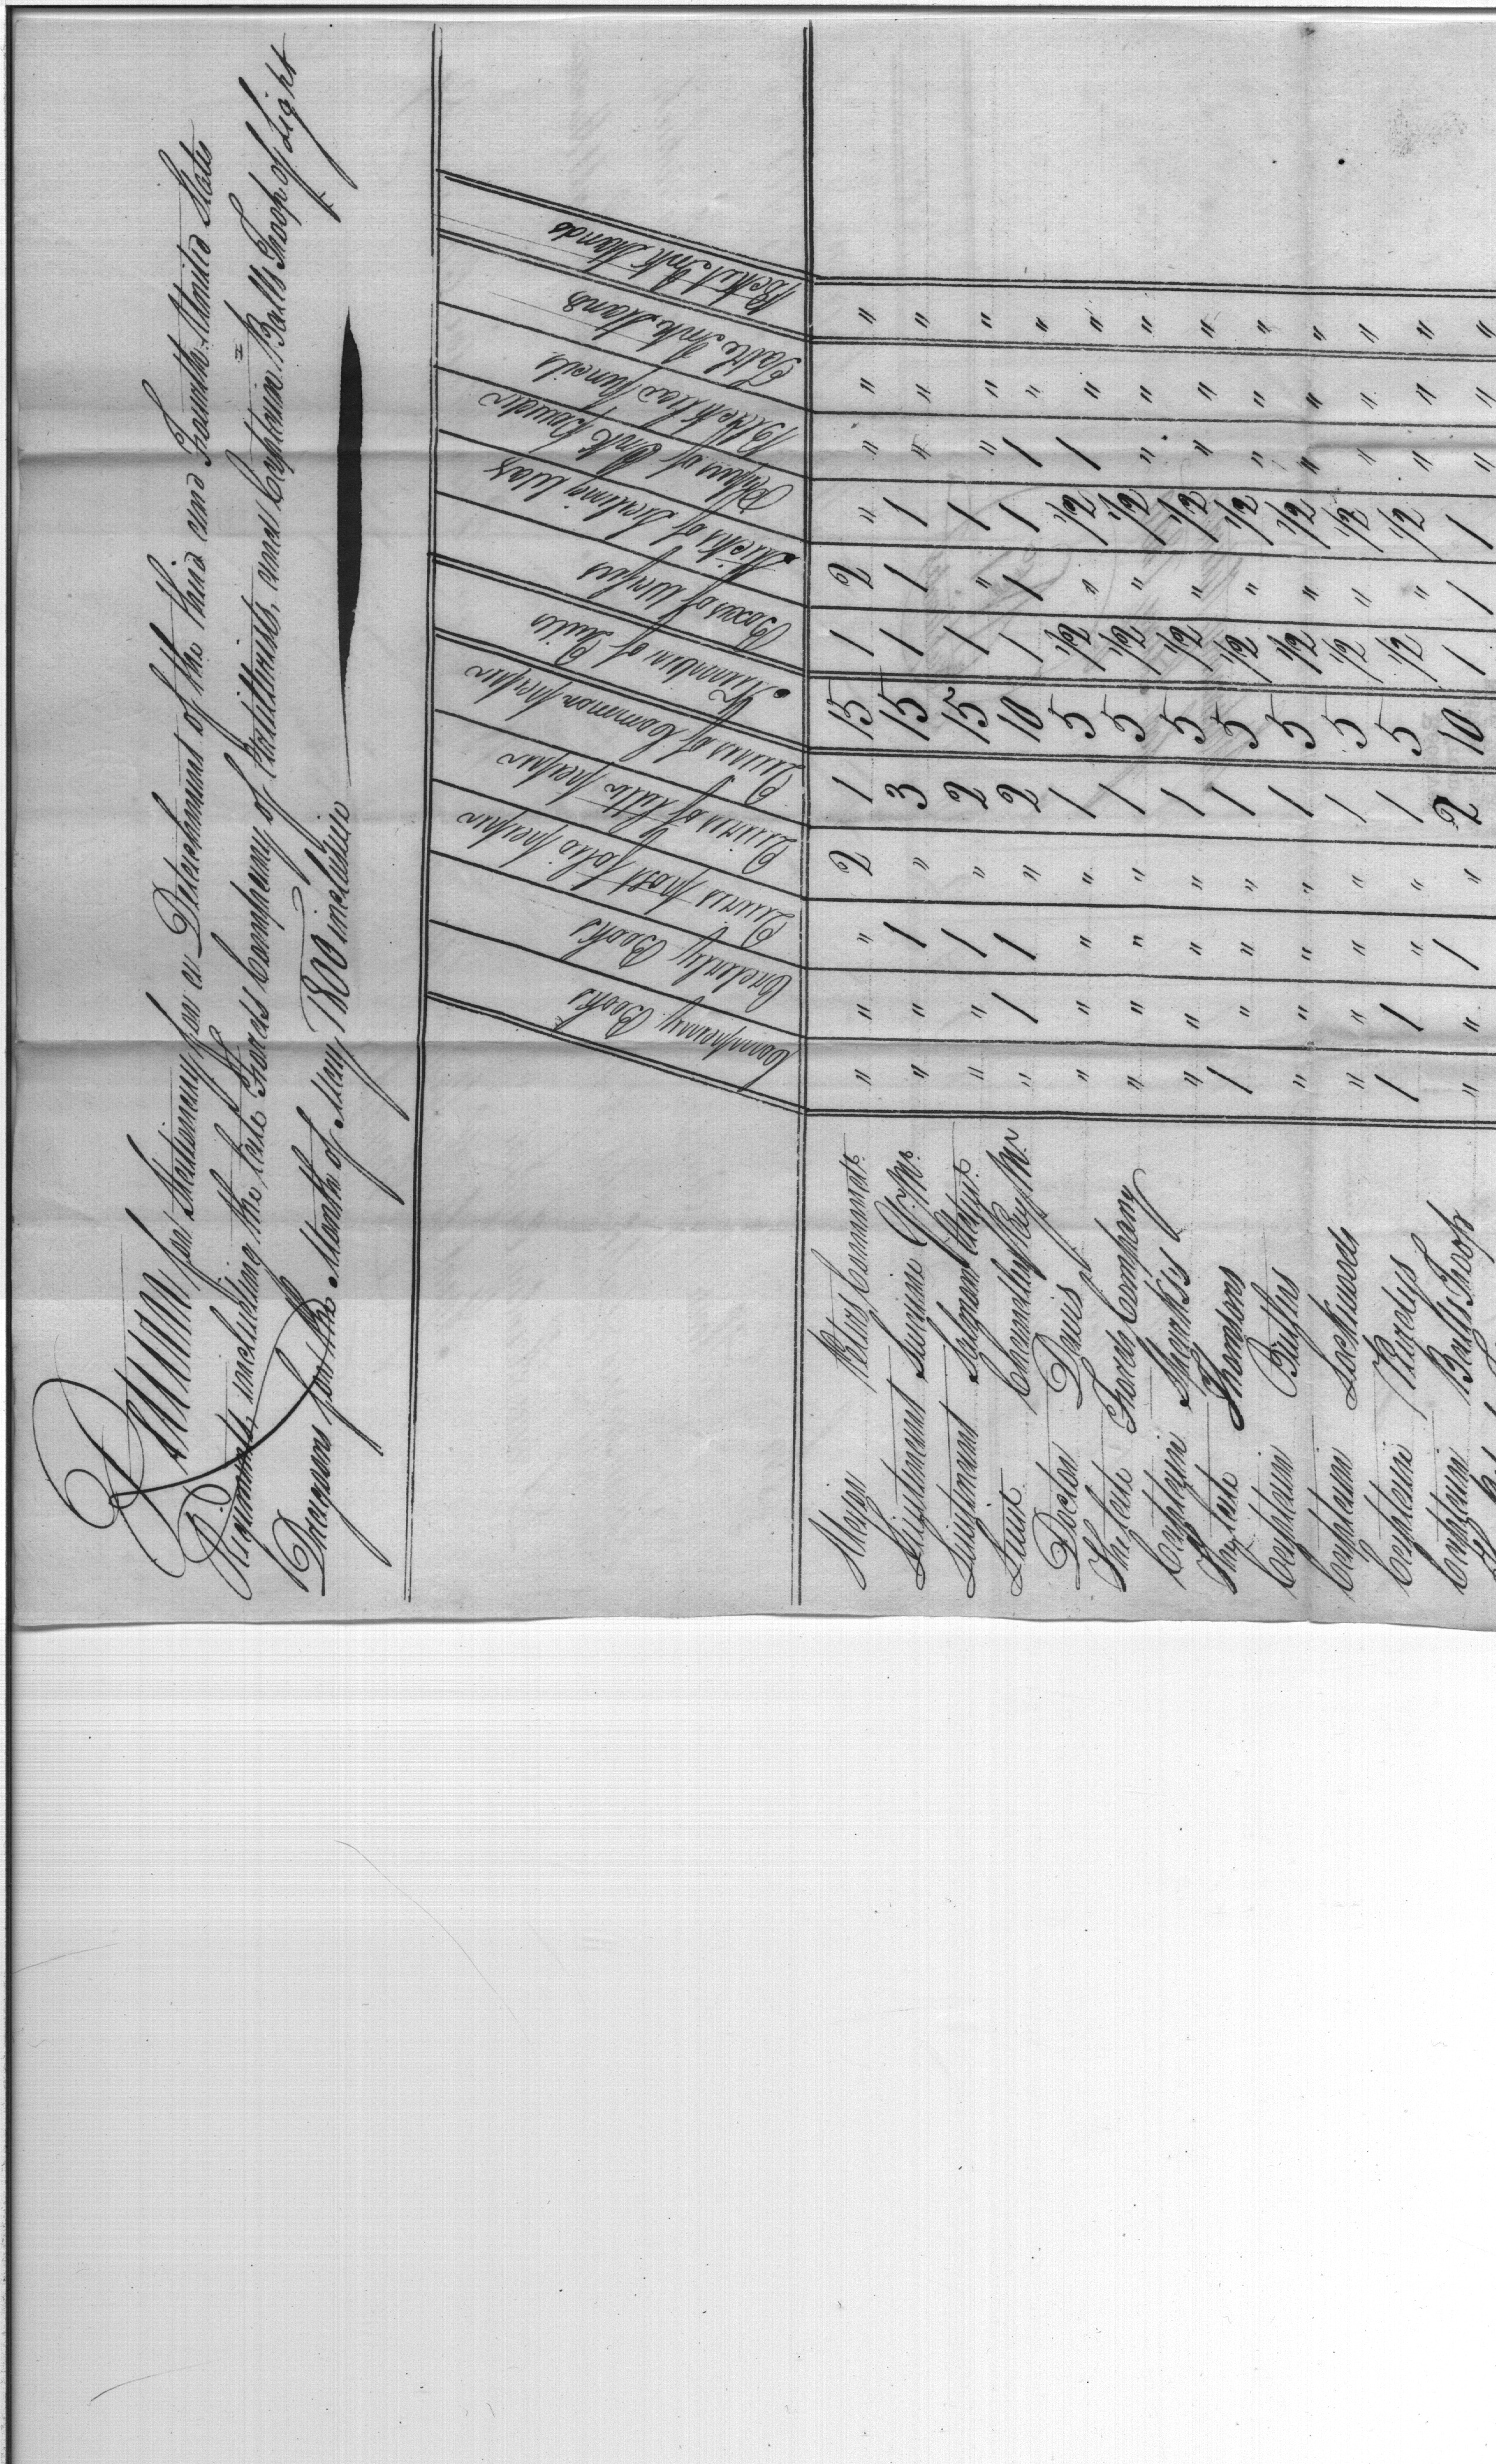 Return for Stationery for a Detachment of the third and Fourth United States
Regiments, including the late Fords Company of Artillerists, and Captain Balls Troop of Light
Dragoons for the Month of May 1800 inclusive
Company Books
Orderly Books
Quires post folio paper
Quires of Letter paper
Quires of Common paper
Number of Quils
Boxes of Wafers
Sticks of Sealing Wax
Papers of Ink Powder
Black lead pencils
Table Ink Stand
Pocket Ink Stands
Major Peters Commandt. " " " 2 1 15 1 2 " " " "
Lieutenant Q.M. " " 1 " 3 15 1 1 1 " " "
Lieutenant Salmon Adjut. " " 1 " 2 15 1 " 1 " " "
Lieut. Chandley Pay Mr. " 1 1 " 2 10 1 1 1 1 " "
Doctor Davis " " " " 1 5 1/2 " 1/2 1 " "
The late Fords Company " " " " 1 5 1/2 " 1/2 " " "
Captain " " " " 1 5 1/2 " 1/2 " " "
The late Thomsons 1 " " " 1 5 1/2 " 1/2 " " "
Captain Butlers " " " " 1 5 1/2 " 1/2 " " "
Captain Lockwoods " " " " 1 5 1/2 " 1/2 " " "
Captain Purdys 1 1 " " 1 5 1/2 " 1/2 " " "
Captain Balls Troop " " 1 " 2 10 1 1 1 " " "